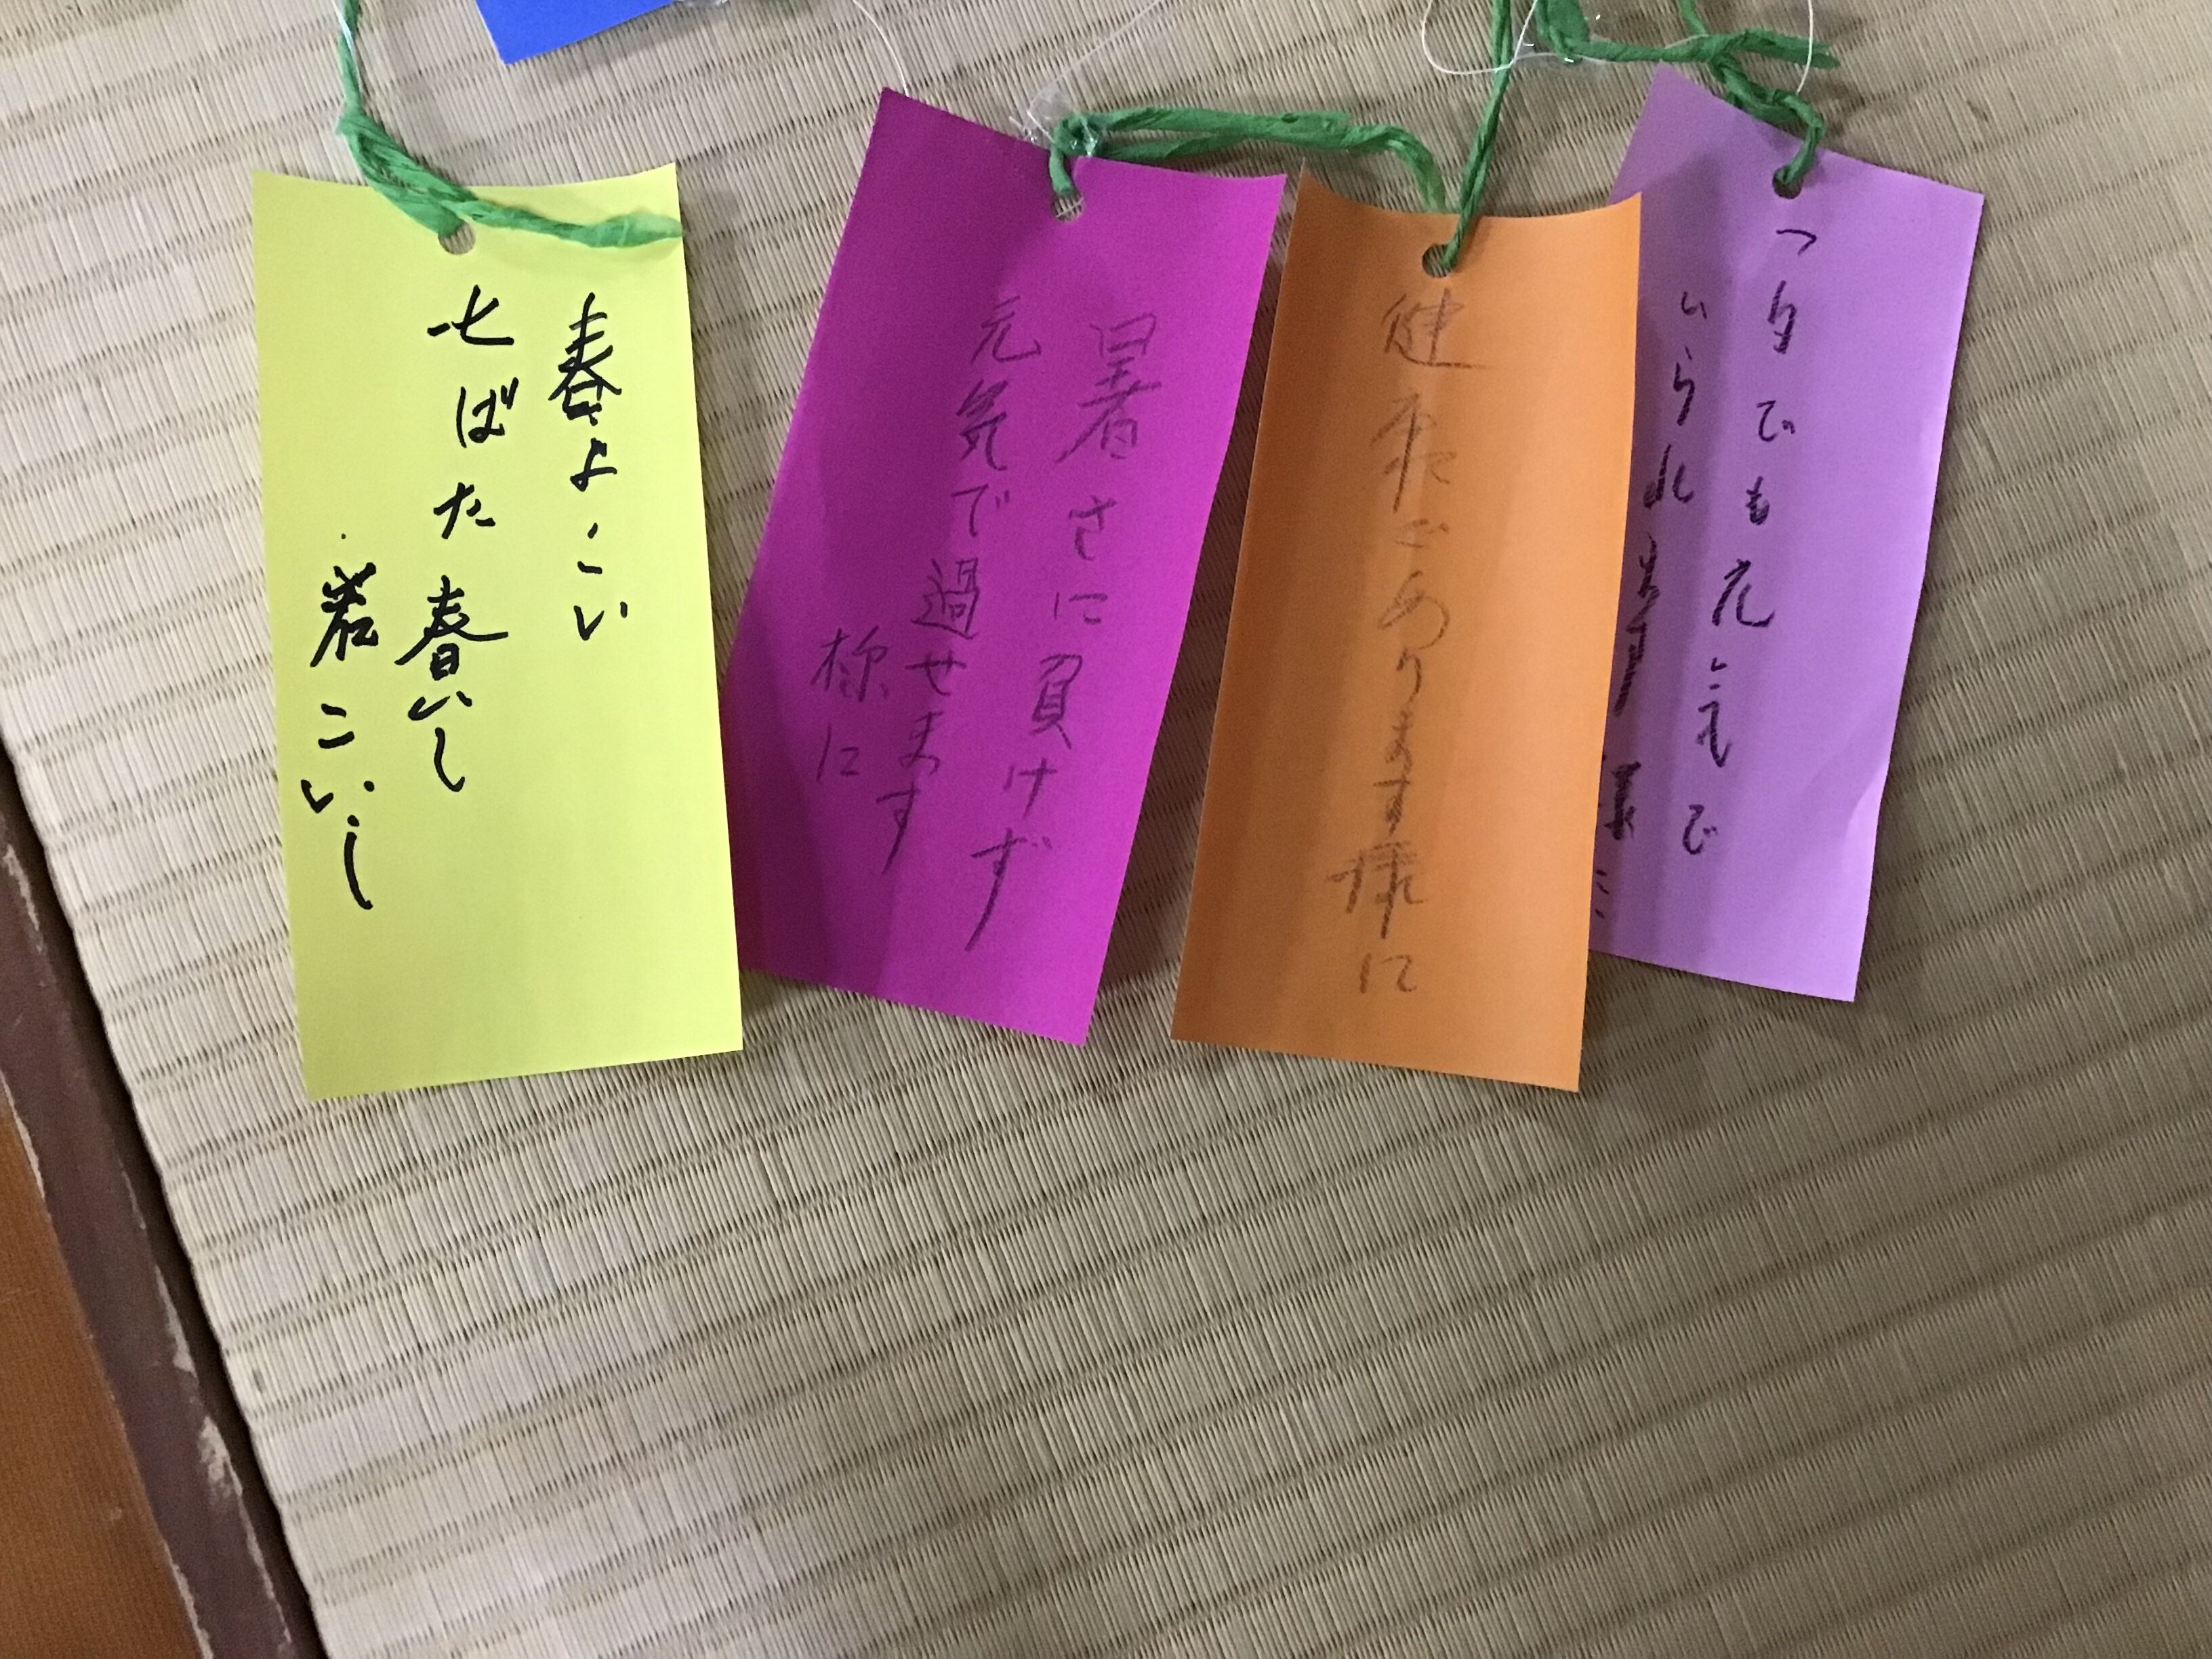 春よこい
七ばた春いし
岩こいし
暑さに負けず
元気で過せます
様に
健康であります様に
つまでも元気で
いられます様に